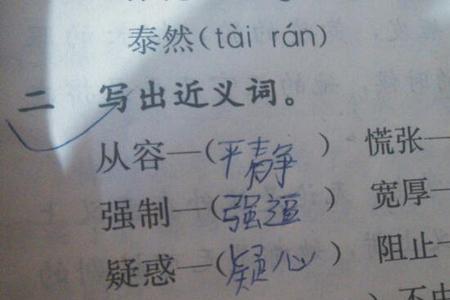 泰然(tài rán)
二 写出近义词。
从容—(平静) 慌张—
强制—(强逼) 宽厚—
疑惑—(疑心) 阻止—